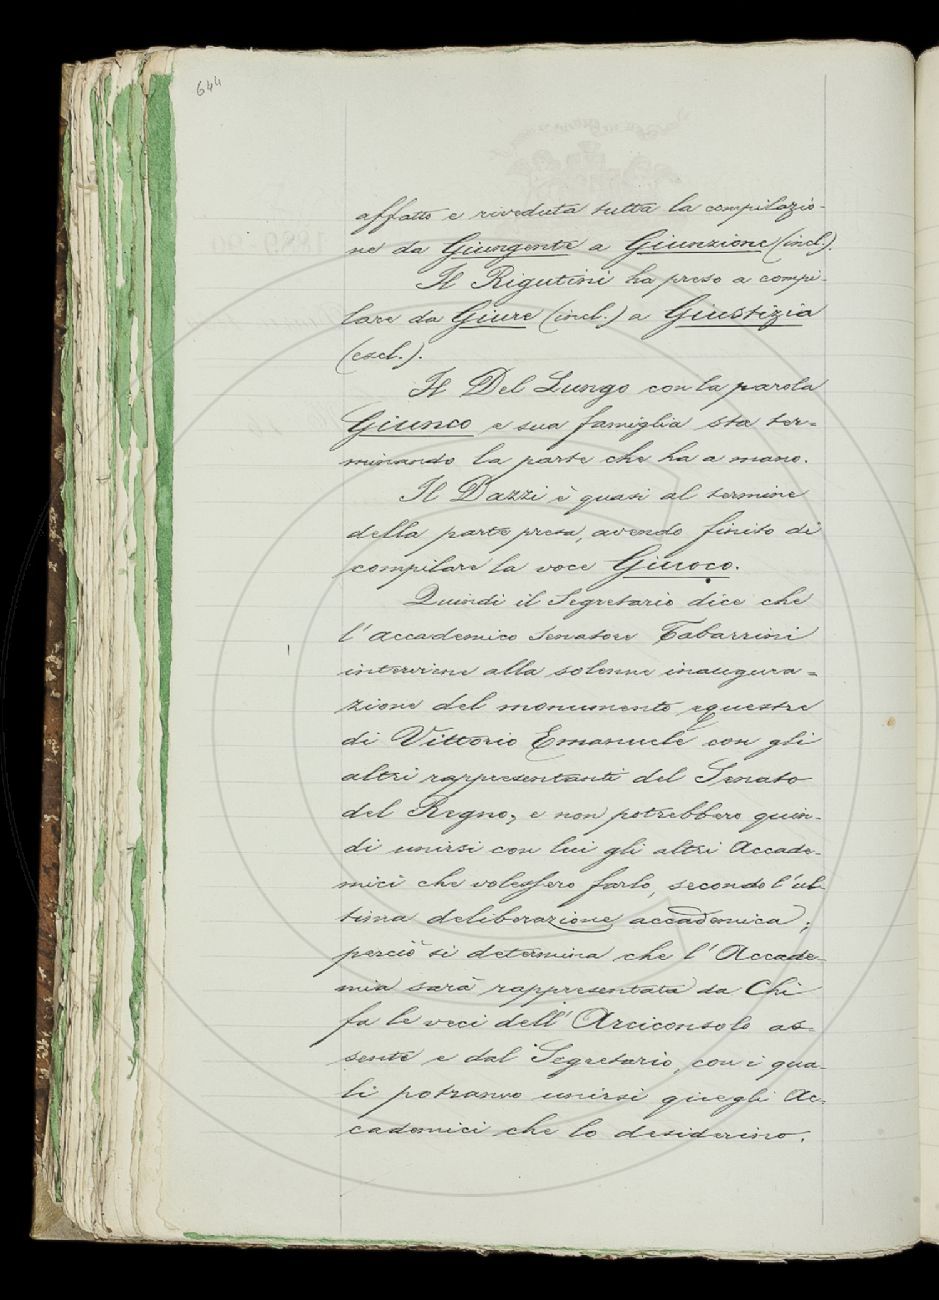 644
affatto e riveduta tutta la compilazio-
ne da Giungente a Giunzione (incl.).
Il Rigutini ha preso a compi-
lare da Giure (incl.) a Giustizia
(escl.).
Il Del Lungo con la parola
Giunco e sua famiglia sta ter=
minando la parte che ha a mano.
Il Dazzi è quasi al termine
della parte presa, avendo finito di
compilare la voce Giuoco.
Quindi il Segretario dice che
l'accademico senatore Tabarrini
interviene alla solenne inaugura=
zione del monumento equestre
di Vittorio Emanuele con gli
altri rappresentanti del Senato
del Regno, e non potrebbero quin-
di unirsi con lui gli altri Accade-
mici che volessero farlo, secondo l'ul-
tima deliberazione accademica;
perciò si determina che l'Accade-
mia sarà rappresentata da Chi
fa le veci dell'Arciconsolo as-
sente e dal Segretario, con i qua-
li potranno unirsi quegli Ac-
cademici che lo desiderino.